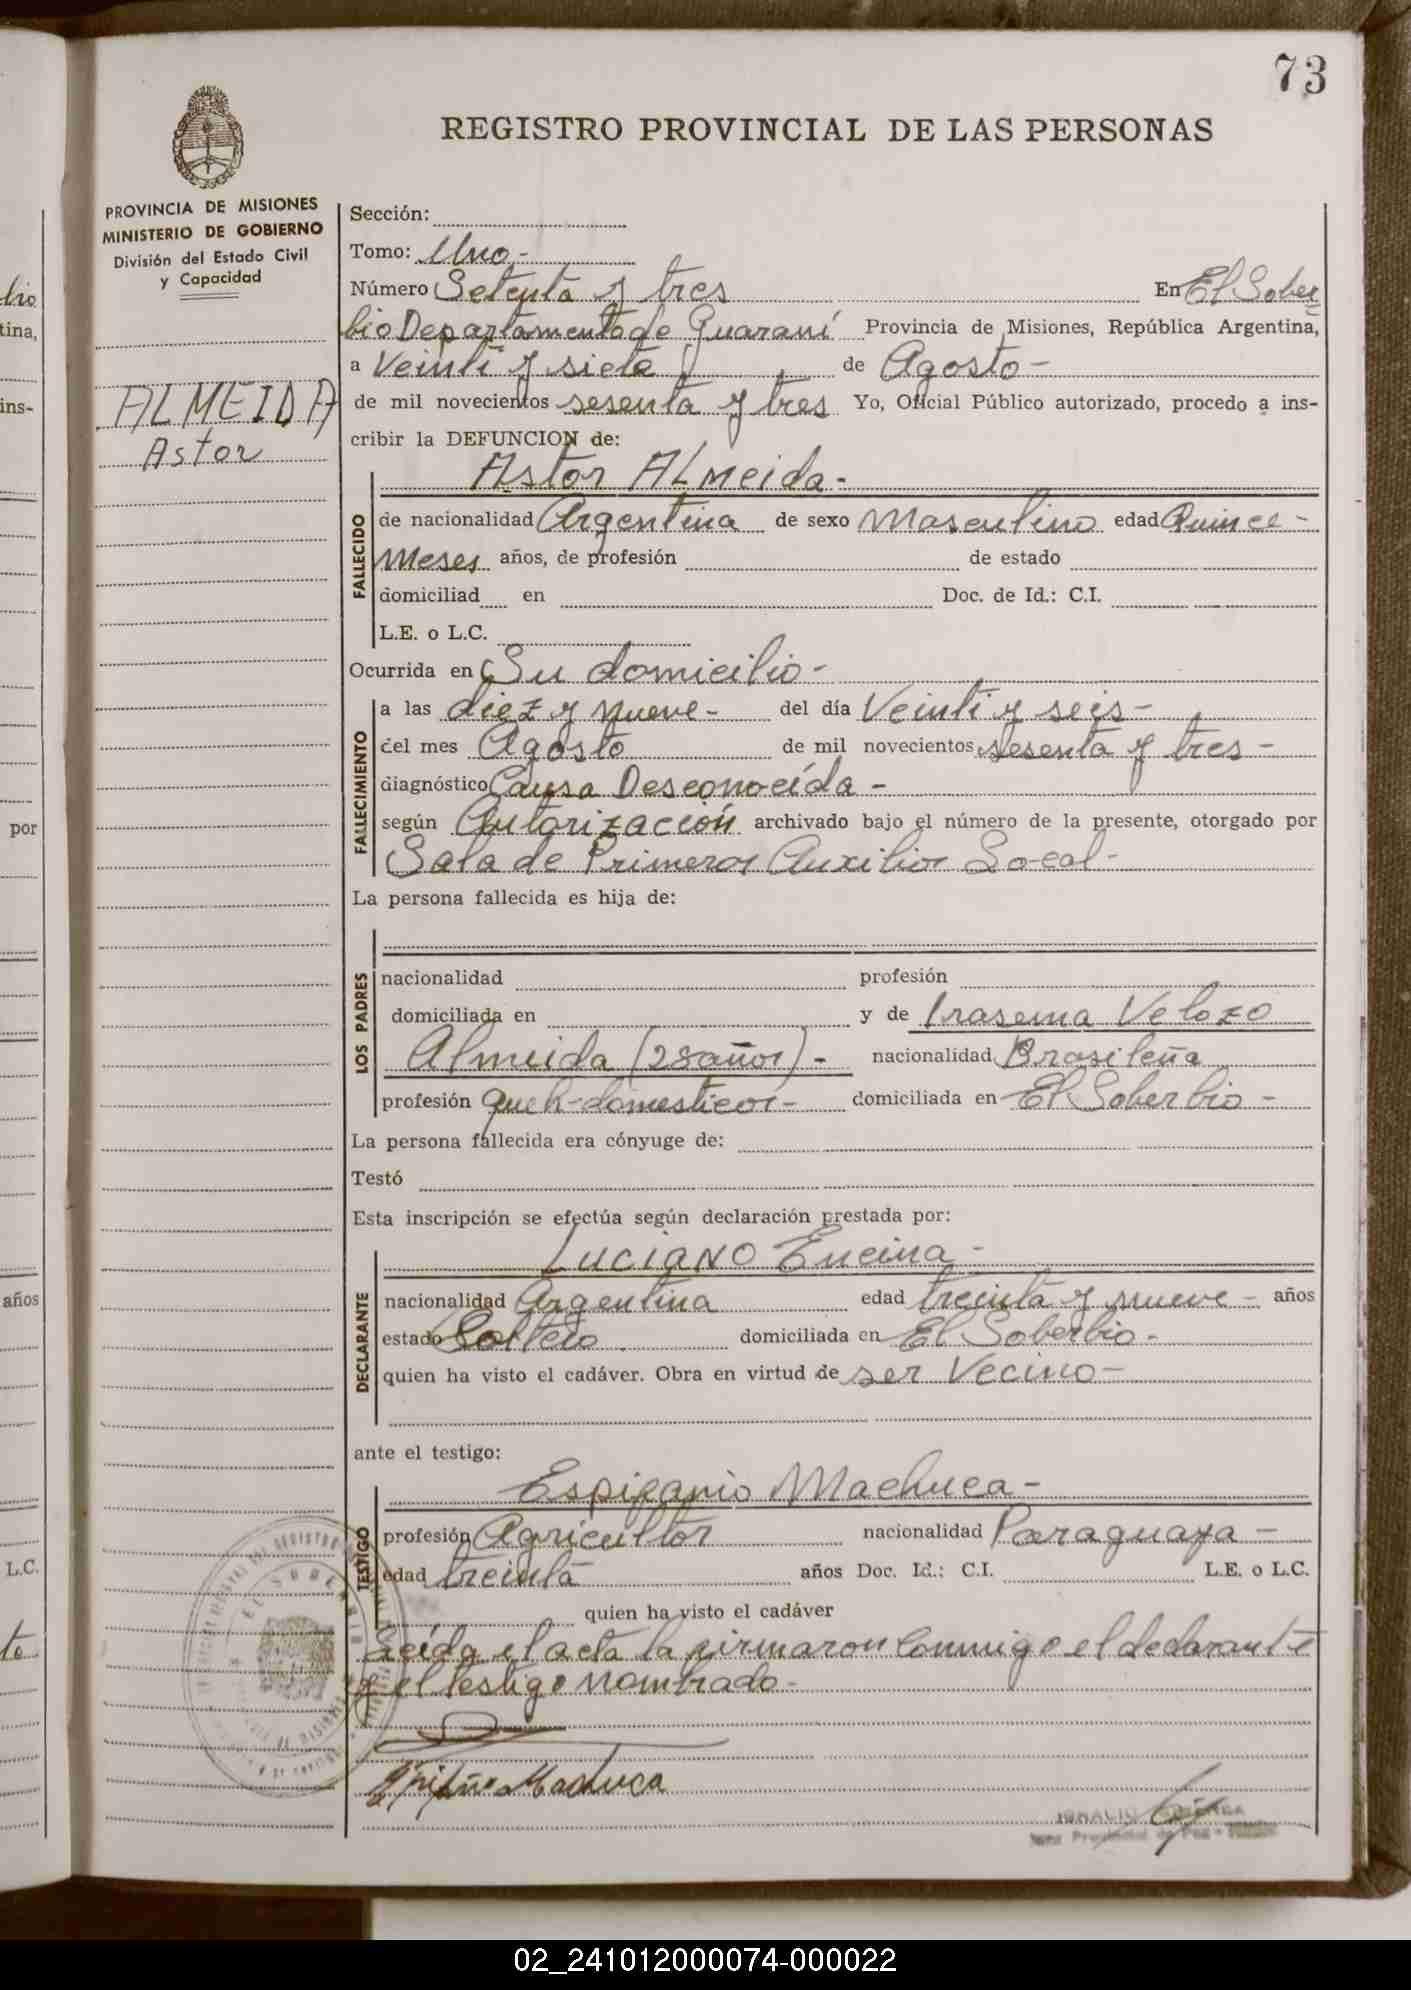 73
REGISTRO PROVINCIAL DE LAS PERSONAS
PROVINCIA DE MISIONES
MINISTERIO DE GOBIERNO
División del Estado Civil
y Capacidad
ALMEIDA
Astor
Sección:
Tomo: Uno.-
Número Setenta y tres En El Sober
bio Departamento de Guaraní Provincia de Misiones, República Argentina,
a Veinti y siete de Agosto -
de mil novecientos sesenta y tres Yo, Oficial Público autorizado, procedo a ins-
cribir la DEFUNCION de:
Astor ALMeida -
FALLECIDO
de nacionalidad Argentina de sexo Masculino edad Quince -
Meses años, de profesión de estado
domiciliad en Doc. de Id.: C.I.
L.E. o L.C.
Ocurrida en Su domicilio -
FALLECIMIENTO
a las diez y nueve - del día Veinti y seis -
del mes Agosto de mil novecientos sesenta y tres -
diagnóstico Causa Desconocída -
según Autorización archivado bajo el número de la presente, otorgado por
Sala de Primeros Auxilios Local -
La persona fallecida es hija de:
LOS PADRES
nacionalidad profesión
domiciliada en y de Irasema Velozo
Almeida (28 años) - nacionalidad Brasileña
profesión queh-domesticos - domiciliada en El Soberbio -
La persona fallecida era cónyuge de:
Testó
Esta inscripción se efectúa según declaración prestada por:
LUCIANO Encina -
DECLARANTE
nacionalidad Argentina edad treinta y nueve - años
estado Soltero domiciliada en El Soberbio -
quien ha visto el cadáver. Obra en virtud de ser Vecino -
ante el testigo:
Espifanio Machuca -
TESTIGO
profesión Agricultor nacionalidad Paraguaya -
edad treinta años Doc. Id.: C.I. L.E. o L.C.
quien ha visto el cadáver
Leída el acta la firmaron Conmigo el declarante
y el testigo nombrado -
Machuca
IGNACIO
02_241012000074-000022